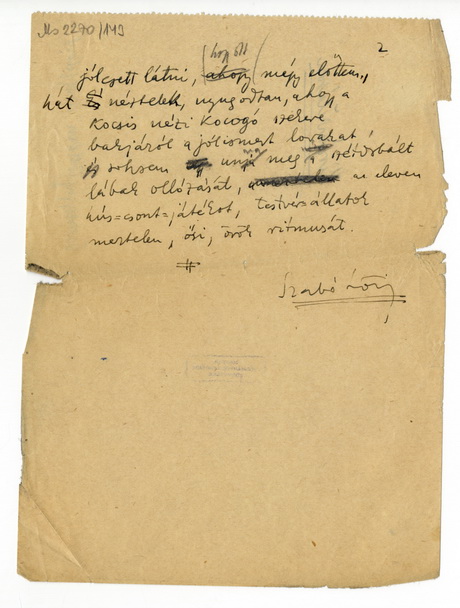 Ms 2270/143
2
hogy ott
jólesett látni, ahogy mégy előttem,
hát néztelek, nyugodtan, ahogy a
kocsis nézi kocogó szekere
bakjáról a jólismert lovakat
és sohsem unja meg a szétdobált
lábak ollózását, az eleven
hús=csont=játékot, testvér=állatok
meztelen, ősi, örök ritmusát.
Szabó Lőrinc